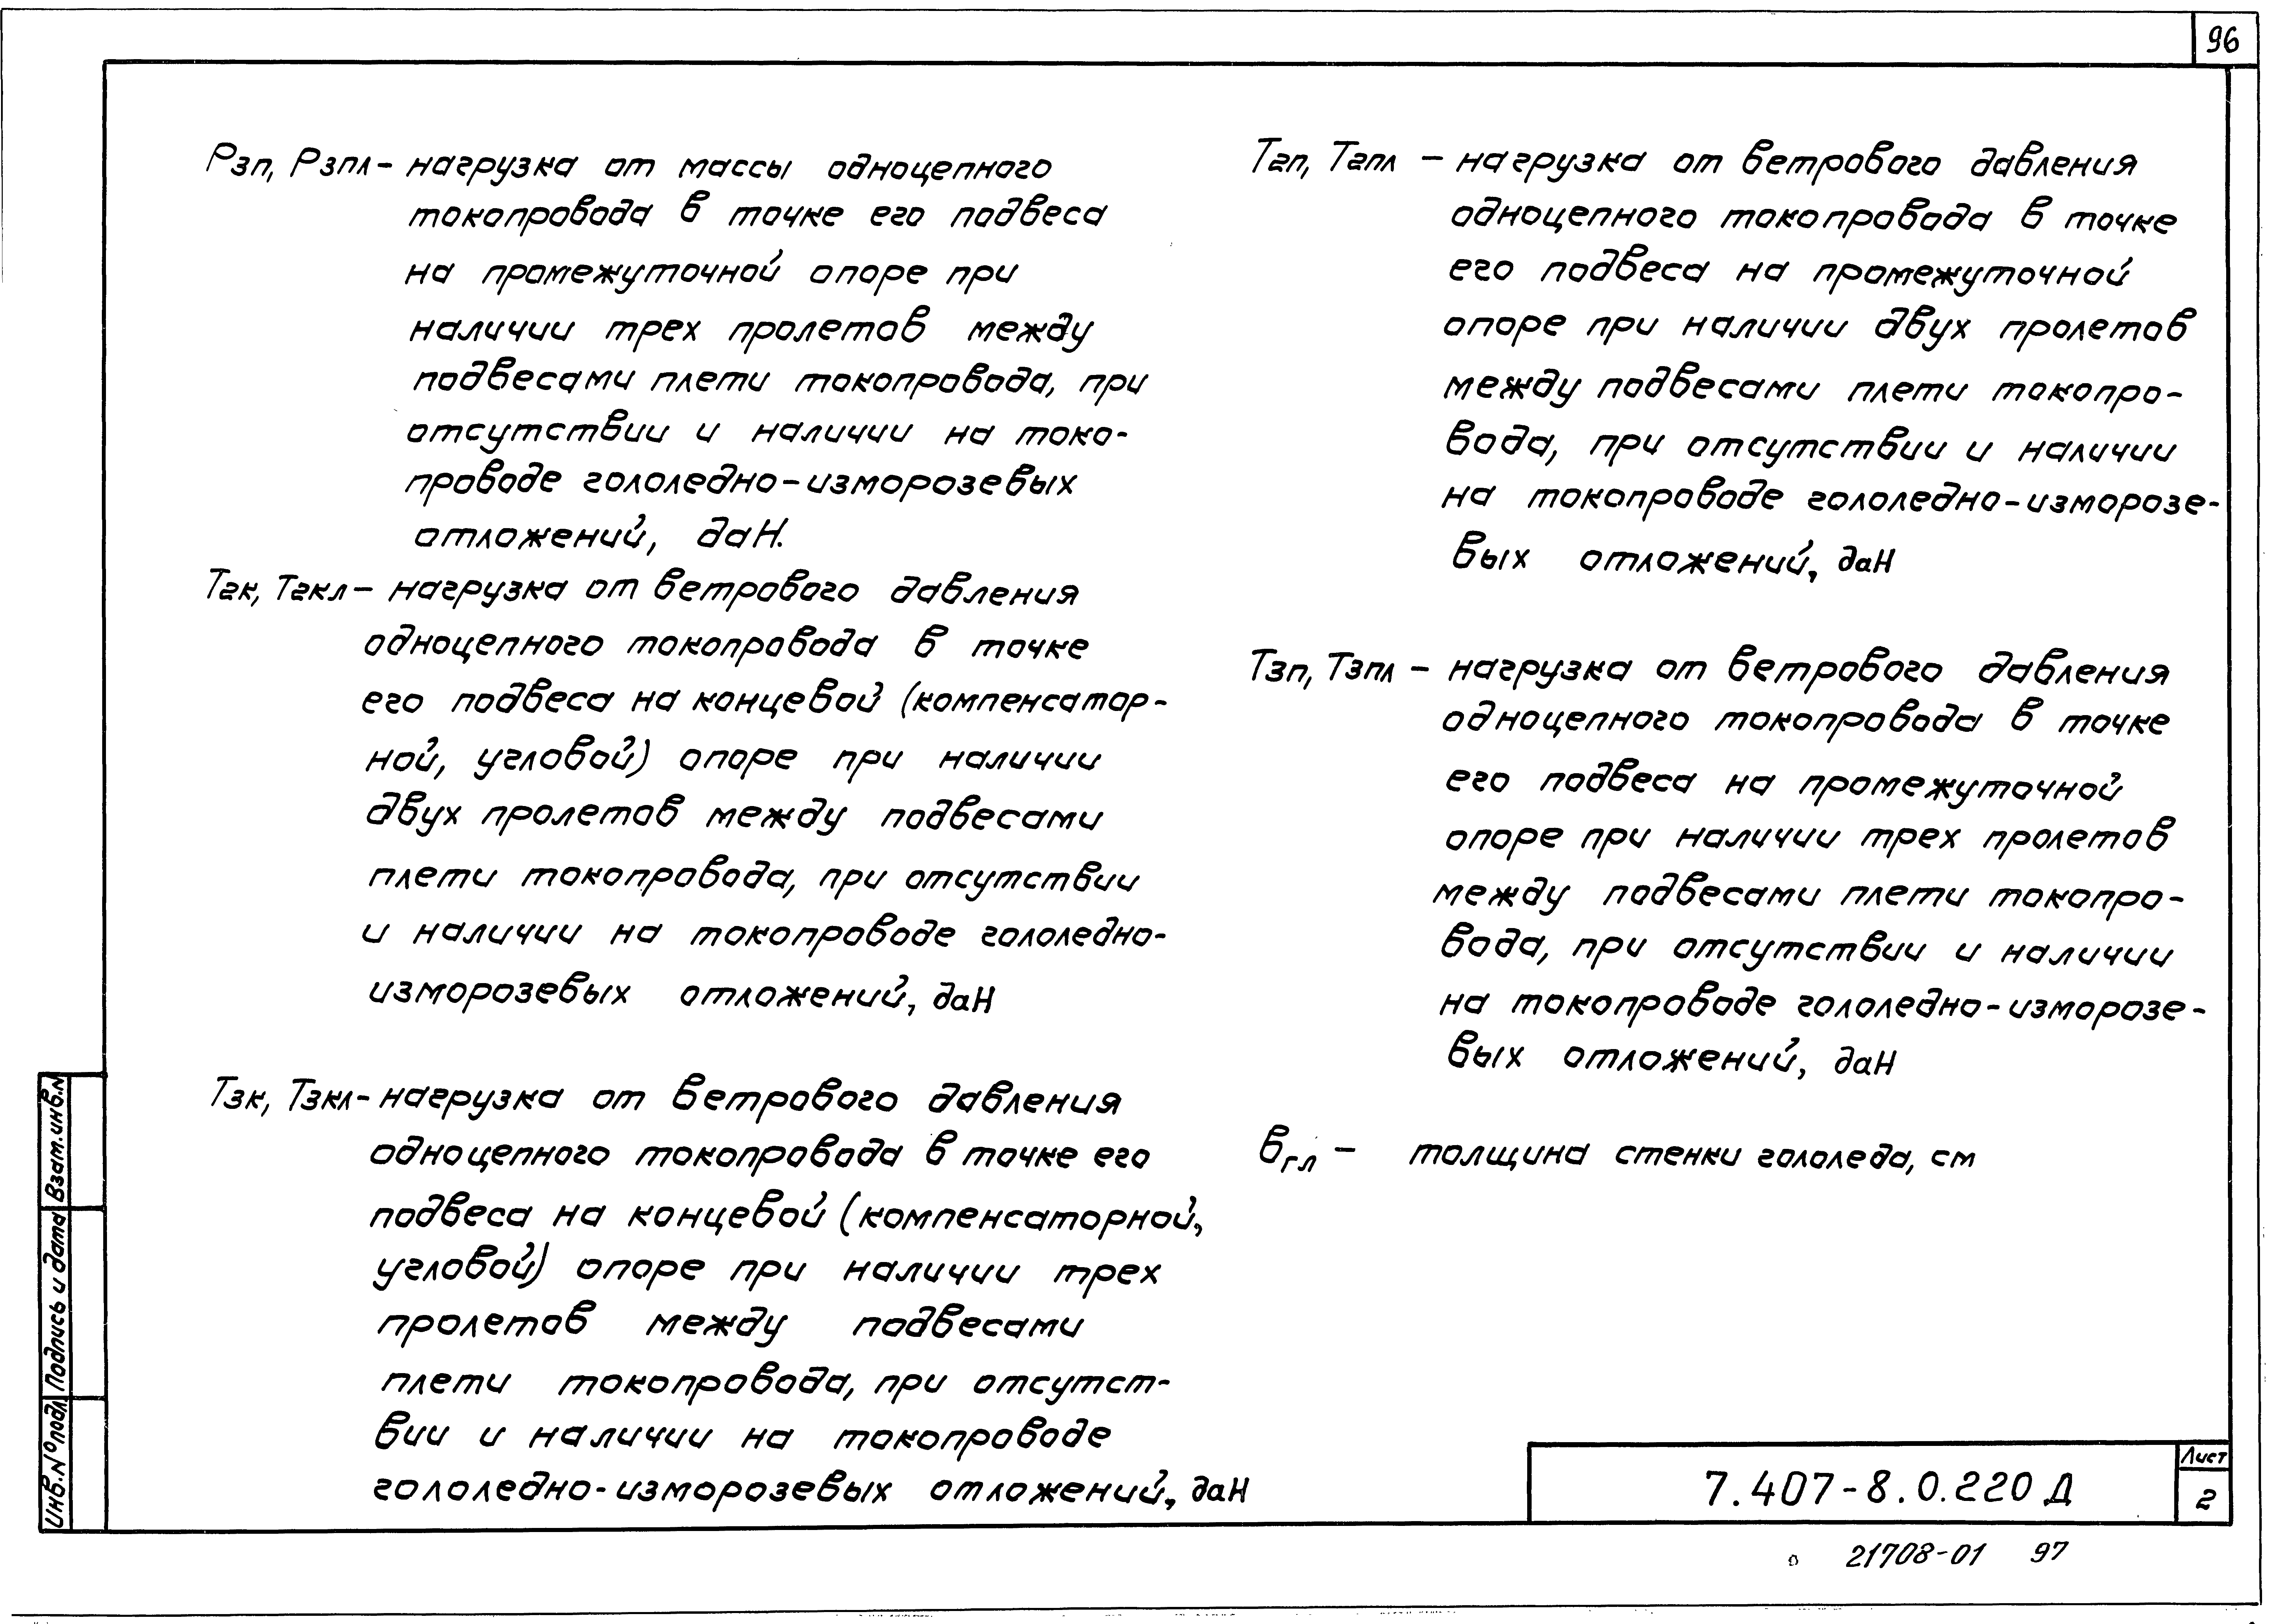 96
Рзп, Рзпл - нагрузка от массы одноцепного
токопровода в точке его подвеса
на промежуточной опоре при
наличии трех пролетов между
подвесами плети токопровода, при
отсутствии и наличии на токо-
проводе гололедно-изморозевых
отложений, даН.
Т2к, Т2кл - нагрузка от ветрового давления
одноцепного токопровода в точке
его подвеса на концевой (компенсатор-
ной, угловой) опоре при наличии
двух пролетов между подвесами
плети токопровода, при отсутствии
и наличии на токопроводе гололедно-
изморозевых отложений, даН
Тзк, Тзкл - нагрузка от ветрового давления
одноцепного токопровода в точке его
подвеса на концевой (компенсаторной,
угловой) опоре при наличии трех
пролетов между подвесами
плети токопровода, при отсутст-
вии и наличии на токопроводе
гололедно-изморозевых отложений, даН
Т2п, Т2пл - нагрузка от ветрового давления
одноцепного токопровода в точке
его подвеса на промежуточной
опоре при наличии двух пролетов
между подвесами плети токопро-
вода, при отсутствии и наличии
на токопроводе гололедно-изморозе-
вых отложений, даН
Тзп, Тзпл - нагрузка от ветрового давления
одноцепного токопровода в точке
его подвеса на промежуточной
опоре при наличии трех пролетов
между подвесами плети токопро-
вода, при отсутствии и наличии
на токопроводе гололедно-изморозе-
вых отложений, даН
вгл - толщина стенки гололеда, см
Взам.инв.№
Подпись и дата
Инв.№подл
7.407-8.0.220 Д
Лист
2
21708-01 97